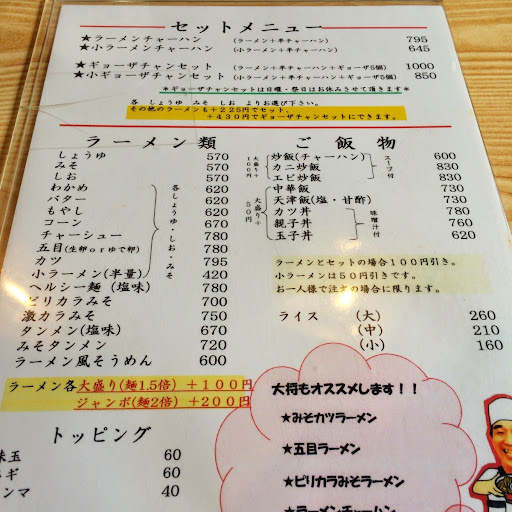 セットメニュー
★ラーメンチャーハン (ラーメン+半チャーハン) 795
★小ラーメンチャーハン (小ラーメン+半チャーハン) 645
★ギョーザチャンセット (ラーメン+半チャーハン+ギョーザ5個) 1000
★小ギョーザチャンセット (小ラーメン+半チャーハン+ギョーザ5個) 850
*ギョーザチャンセットは日曜・祭日はお休みさせて頂きます*
各 しょうゆ みそ しお よりお選び下さい。
その他のラーメンも+225円でセット、
+430円でギョーザチャンセットにできます。
ラーメン類
しょうゆ 570
みそ 570
しお 570
わかめ 620
バター 620
もやし 620
コーン 620
チャーシュー 780
五目(生卵or ゆで卵) 780
カツ 795
小ラーメン(半量) 420
各しょうゆ・しお・みそ
ヘルシー麺(塩味) 780
ピリカラみそ 700
激カラみそ 750
タンメン(塩味) 670
みそタンメン 720
ラーメン風そうめん 600
ラーメン各大盛り(麺1.5倍) +100円
ジャンボ(麺2倍) +200円
トッピング
味玉 60
ネギ 60
ンマ 40
ご飯物
炒飯(チャーハン) 600
カニ炒飯 830
エビ炒飯 830
大盛り+100円
スープ付
中華飯 730
天津飯(塩・甘酢) 730
カツ丼 780
親子丼 760
玉子丼 620
大盛り+50円
味噌汁付
ラーメンとセットの場合100円引き。
小ラーメンは50円引きです。
お一人様で注文の場合に限ります。
ライス (大) 260
(中) 210
(小) 160
大将もオススメします!!
★みそカツラーメン
★五目ラーメン
★ピリカラみそラーメン
★ラーメンチャーハン